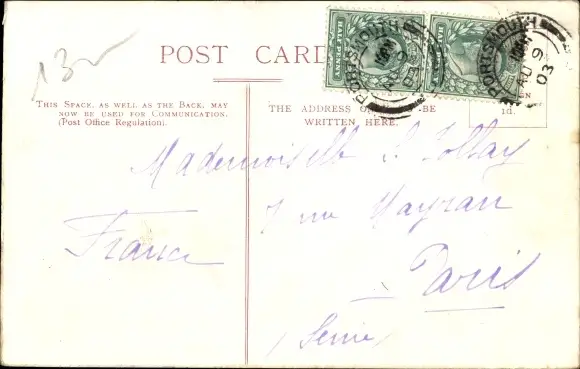 13
POST CARD
HALF PENNY
HALF PENNY
PORTSMOUTH
PORTSMOUTH
AU 9
03
THIS SPACE, AS WELL AS THE BACK, MAY
NOW BE USED FOR COMMUNICATION.
(Post Office Regulation).
THE ADDRESS BE
WRITTEN HERE.
1d.
Mademoiselle J. Follay
7 rue Mayran
France
Paris
(Seine)